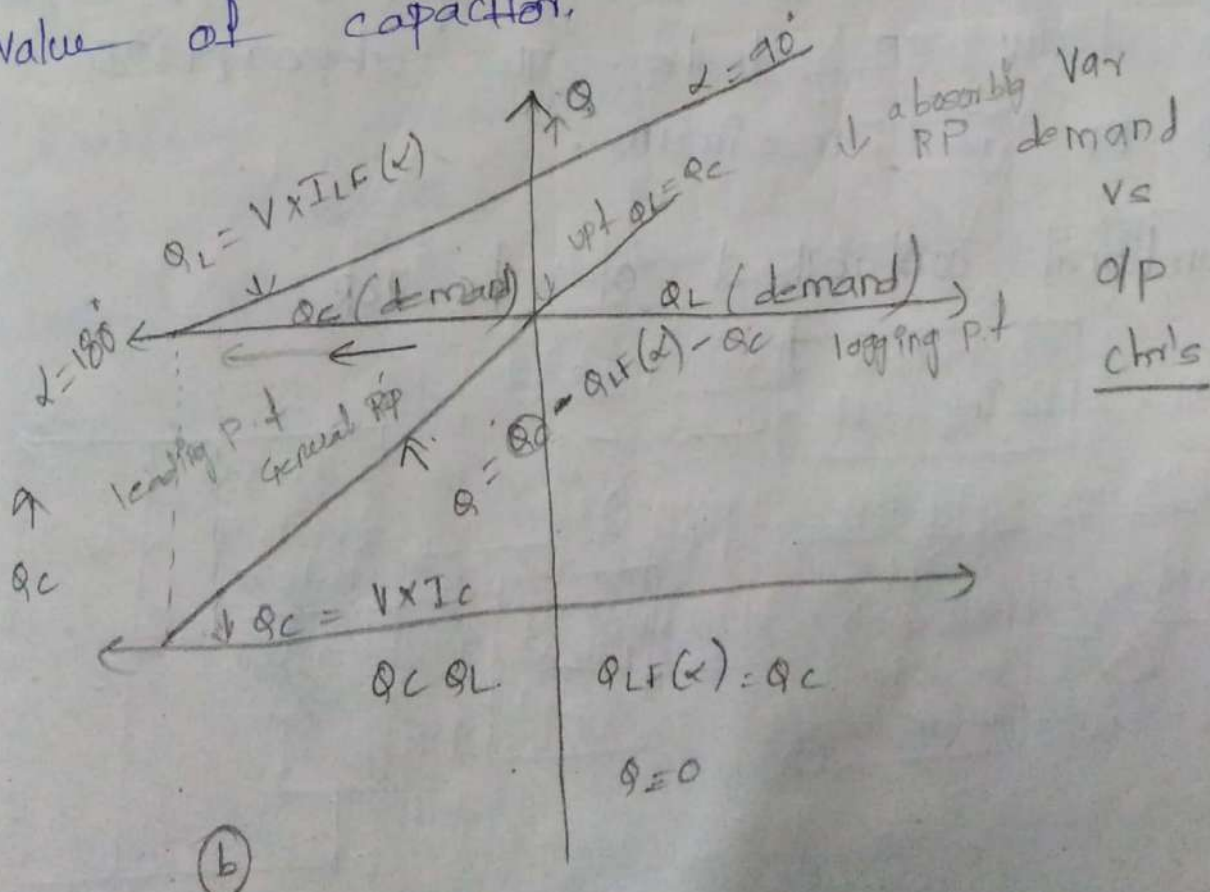 value of capacitor.
Q
α = 90°
absorbing Var
RP demand
vs
o/p
chr's
QL = V × ILF(α)
upt QL = QC
QC (demand)
QL (demand)
α = 180°
QLF(α) - QC
lagging p.f
leading p.f
Q =
QC
QC = V × IC
QC QL
QLF(α) = QC
Q = 0
b